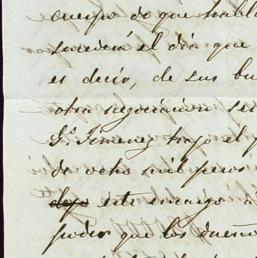 cuerpo de que habla
sucederá el dia que
es decir, de sus bu
otra negociacion se
Sr. Jimenez trajo el p
de ocho mil pesos
dejo este encargo a
poder que los dueño